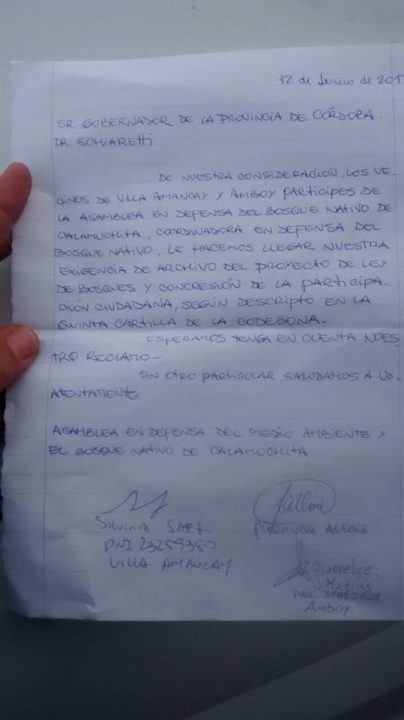 12 de Junio de 201
SR GOBERNADOR DE LA PROVINCIA DE CÓRDOBA.
DR. SCHIARETTI
DE NUESTRA CONSIDERACIÓN, LOS VE-
CINOS DE VILLA AMANCAY Y AMBOY PARTÍCIPES DE
LA ASAMBLEA EN DEFENSA DEL BOSQUE NATIVO DE
CALAMUCHITA, COORDINADORA EN DEFENSA DEL
BOSQUE NATIVO, LE HACEMOS LLEGAR NUESTRA
EXIGENCIA DE ARCHIVO DEL PROYECTO DE LEY
DE BOSQUES Y CONCRESIÓN DE LA PARTICIPA-
CIÓN CIUDADANA, SEGÚN DESCRIPTO EN LA
QUINTA CARTILLA DE LA CODEBONA.
ESPERAMOS TENGA EN CUENTA NUES-
TRO RECLAMO-
SIN OTRO PARTICULAR, SALUDAMOS A UD
ATENTAMENTE
ASAMBLEA EN DEFENSA DEL MEDIO AMBIENTE Y
EL BOSQUE NATIVO DE CALAMUCHITA.
SILVINA SAEZ
DNI 23289380
VILLA AMANCAY
FLORENCIA ALLONI
Matías
DNI
Amboy